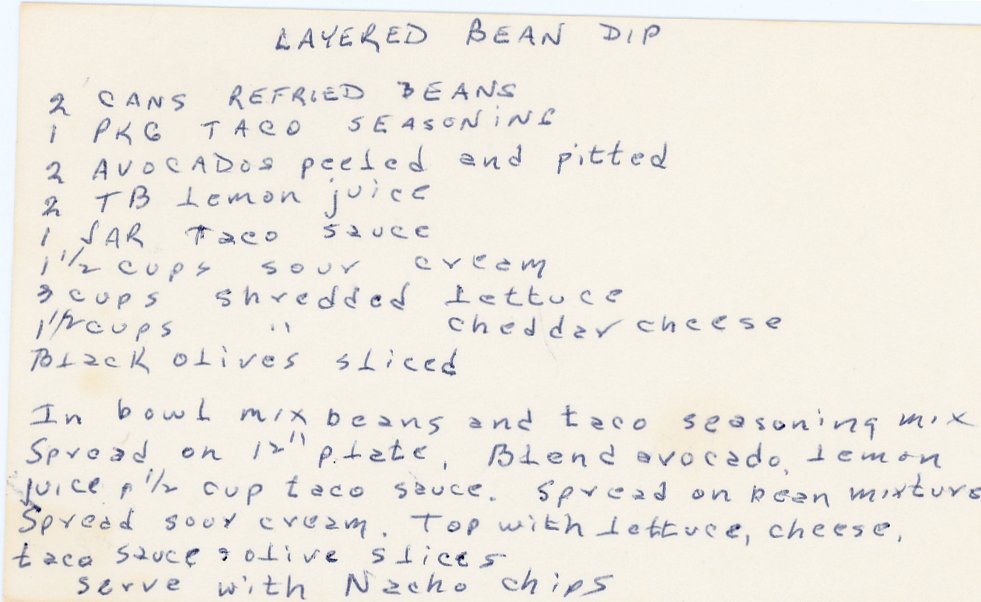 LAYERED BEAN DIP
2 CANS REFRIED BEANS
1 PKG TACO SEASONING
2 AVOCADOS peeled and pitted
2 TB Lemon juice
1 JAR Taco sauce
1 1/2 cups sour cream
3 cups shredded lettuce
1 1/2 cups " cheddar cheese
Black olives sliced
In bowl mix beans and taco seasoning mix
Spread on 12" plate. Blend avocado, lemon
juice & 1/2 cup taco sauce. Spread on bean mixture
Spread sour cream. Top with lettuce, cheese,
taco sauce & olive slices
serve with Nacho chips